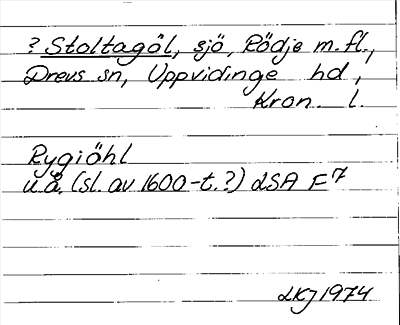 ? Stoltagöl, sjö, Rödje m.fl.,
Drevs sn, Uppvidinge hd,
Kron. l.
Rygiöhl
u.å. (sl. av 1600-t.?) LSA F7
LKJ 1974